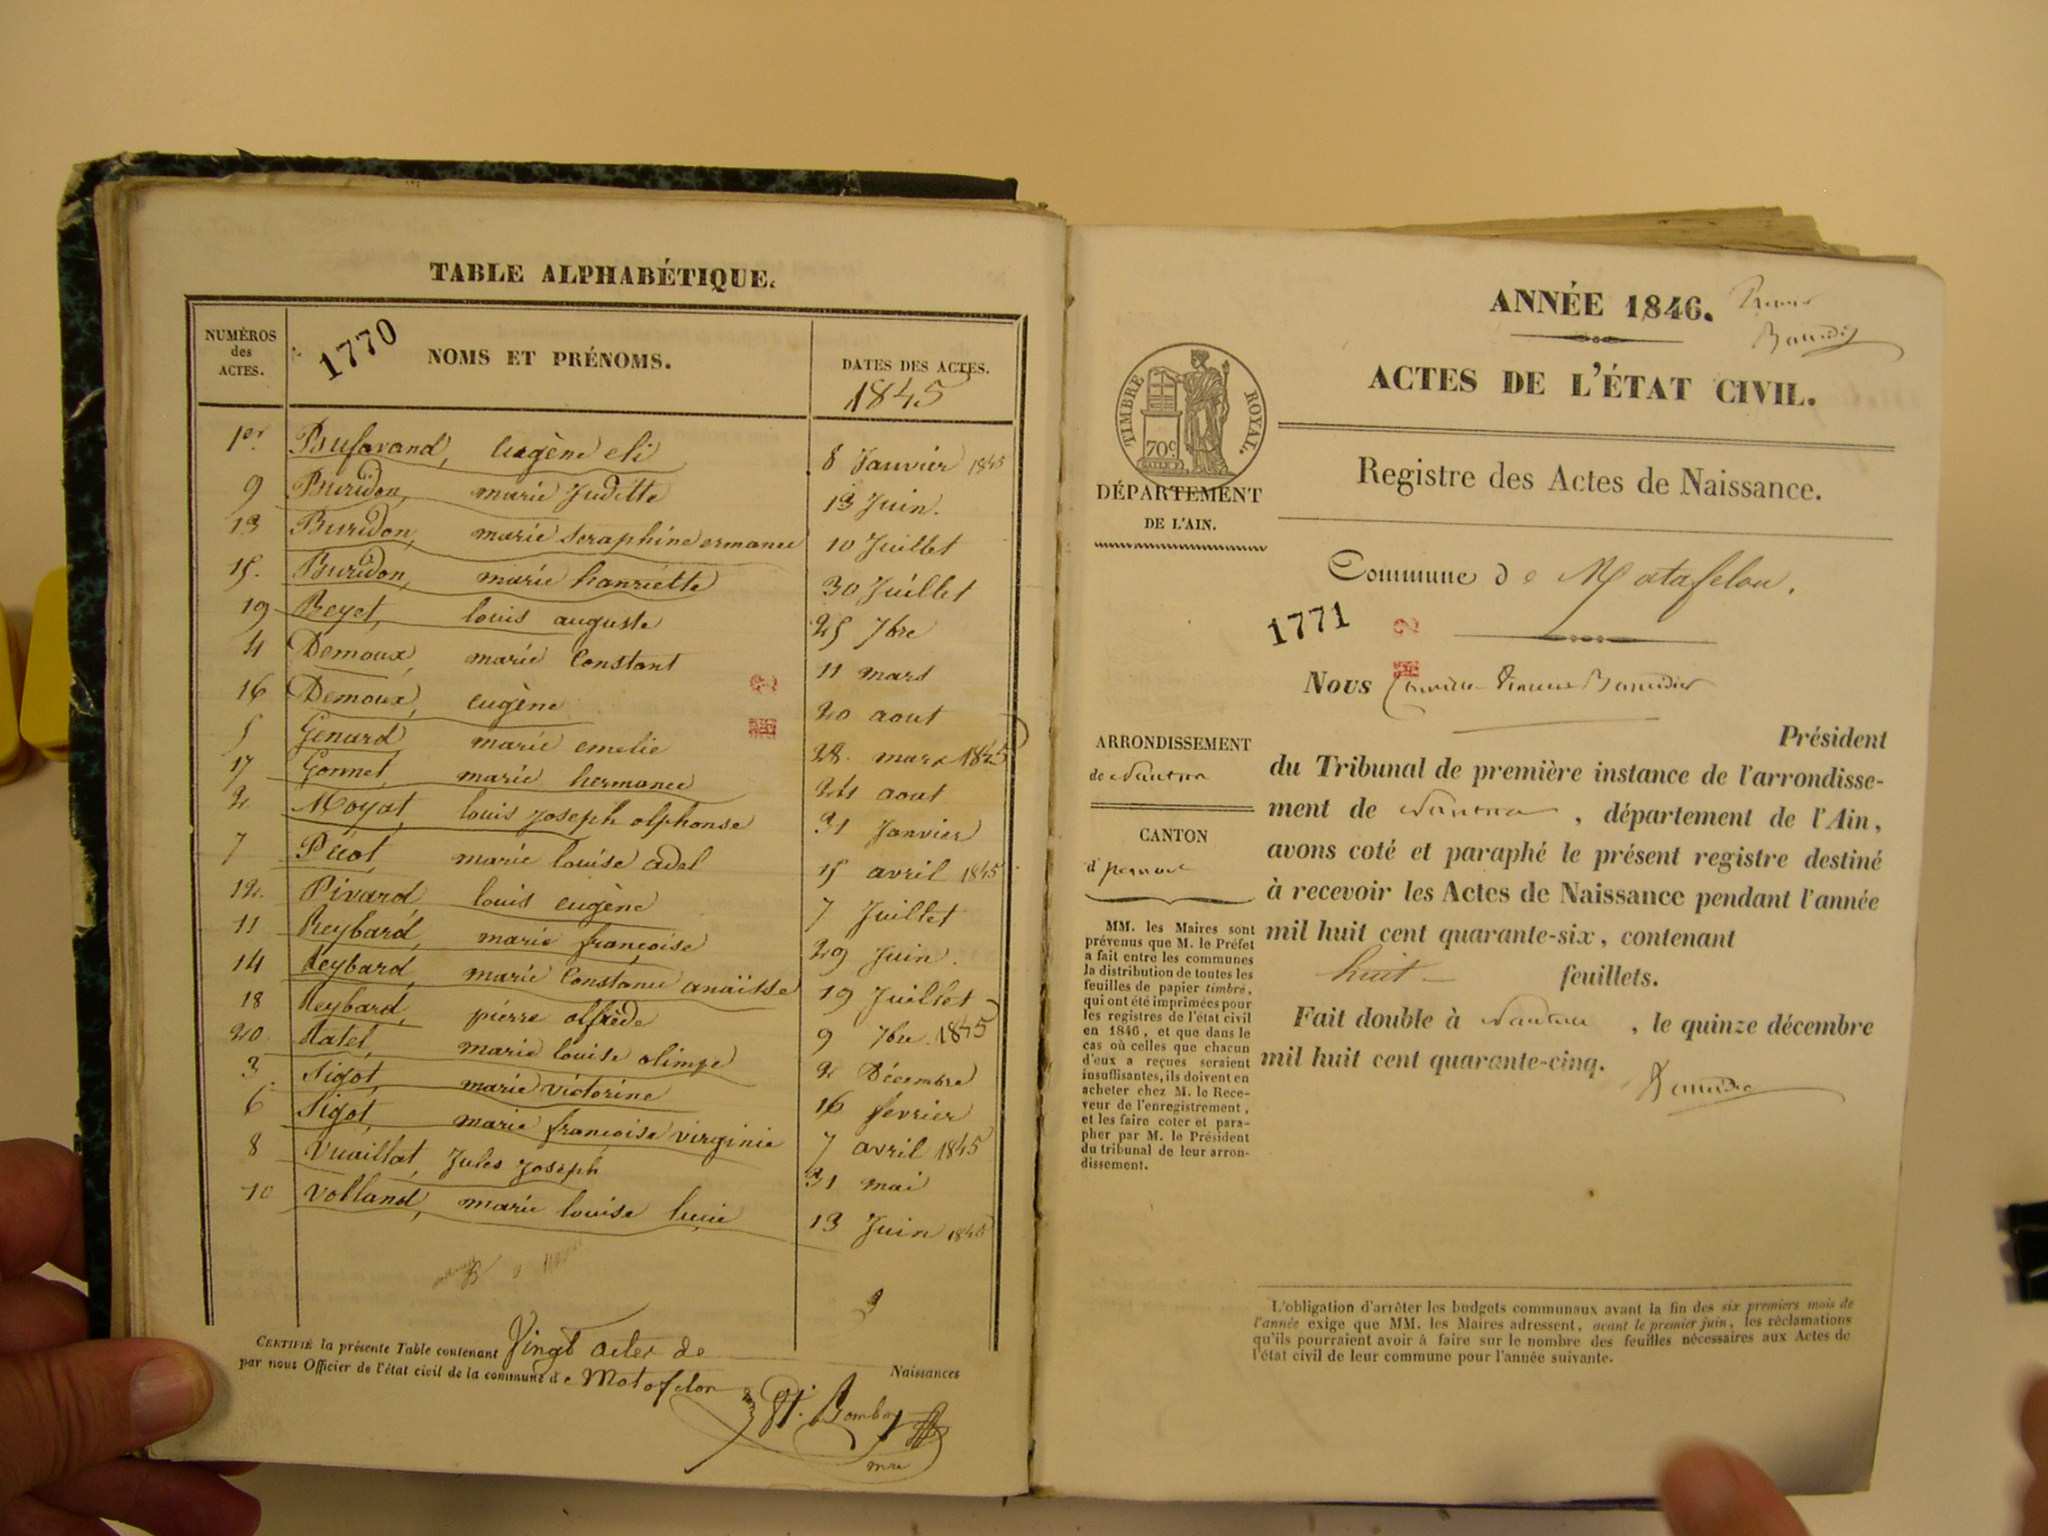 TABLE ALPHABÉTIQUE.
NUMÉROS des ACTES.
1770
NOMS ET PRÉNOMS.
DATES DES ACTES.
1845
1er Bufavand, eugène eli 8 Janvier 1845
9 Buridon, marie Juditte 13 Juin.
13 Buridon, marie seraphine ermance 10 Juillet
15. Buridon, marie hanriette 30 Juillet
19 Beyet, louis auguste 25 7bre
4 Demoux, marie Constant 11 mars
16 Demoux, eugène 20 aout
5 Genard marie emelie 28. mars 1845
17 Gonnet, marie hermance 24 aout
2 Moyat, louis Joseph alphonse 31 Janvier
7 Picot, marie louise adel 15 avril 1845
12. Pivard louis eugène 7 Juillet
11 Reybard, marie françoise 29 Juin.
14 Reybard, marie Constance anaïsse 19 Juillet
18 Reybard, pierre alfrède 9 7bre 1845
20. Ratel, marie louise olimpe 2 Décembre
3. Sigot, marie victorine 16 fevrier
6 Sigot, marie françoise virginie 7 avril 1845
8 Vuaillat, Jules Joseph 31 mai
10 Volland, marie louise lucie 13 Juin 1845
CERTIFIÉ la présente Table contenant Vingt actes de Naissances
par nous Officier de l'état civil de la commune de Matafelon
mre
ANNÉE 1846.
ACTES DE L'ÉTAT CIVIL.
TIMBRE ROYAL.
70c
DÉPARTEMENT
DE L'AIN.
Registre des Actes de Naissance.
Commune de Matafelon.
1771
2
Nous
Président
ARRONDISSEMENT
de Nantua
CANTON
d'
du Tribunal de première instance de l'arrondisse-
ment de Nantua, département de l'Ain,
avons coté et paraphé le présent registre destiné
à recevoir les Actes de Naissance pendant l'année
mil huit cent quarante-six, contenant
huit feuillets.
Fait double à Nantua, le quinze décembre
mil huit cent quarante-cinq.
MM. les Maires sont
prévenus que M. le Préfet
a fait entre les communes
la distribution de toutes les
feuilles de papier timbré,
qui ont été imprimées pour
les registres de l'état civil
en 1846, et que dans le
cas où celles que chacun
d'eux a reçues seraient
insuffisantes, ils doivent en
acheter chez M. le Rece-
veur de l'enregistrement,
et les faire coter et para-
pher par M. le Président
du tribunal de leur arron-
dissement.
L'obligation d'arrêter les budgets communaux avant la fin des six premiers mois de
l'année exige que MM. les Maires adressent, avant le premier juin, les réclamations
qu'ils pourraient avoir à faire sur le nombre des feuilles nécessaires aux Actes de
l'état civil de leur commune pour l'année suivante.